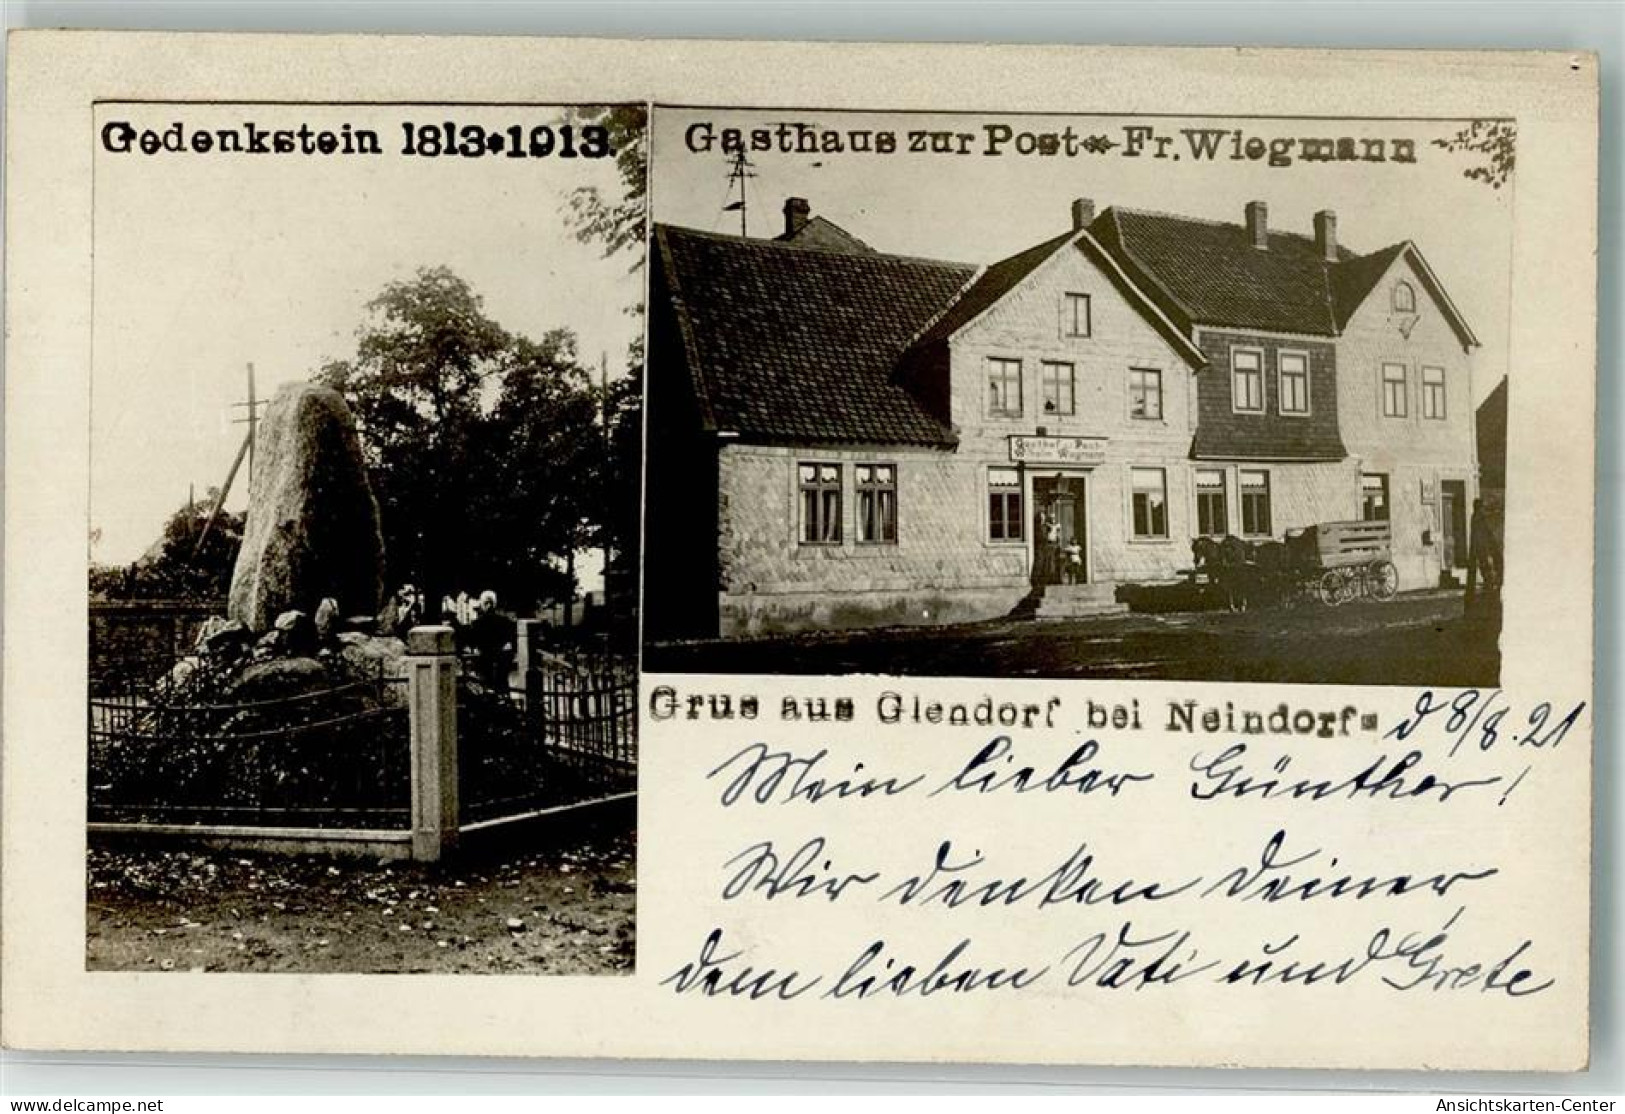 Gedenkstein 1813 * 1913.
Gasthaus zur Post * Fr. Wiegmann
Gasthof zur Post
Wiegmann
Grus aus Glendorf bei Neindorf
d 8/8. 21
Mein lieber Günther!
Wir denken Deiner
dem lieben Vati und Grete
Ansichtskarten-Center